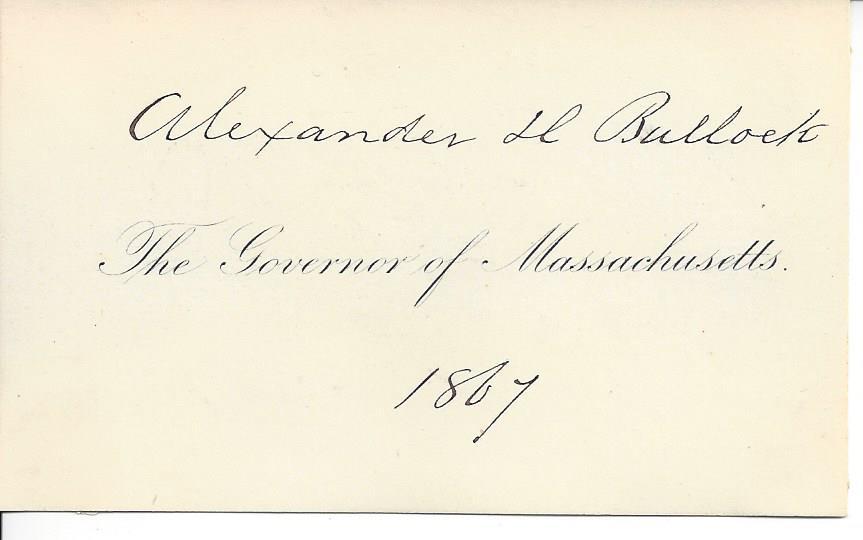 Alexander H Bullock
The Governor of Massachusetts.
1867